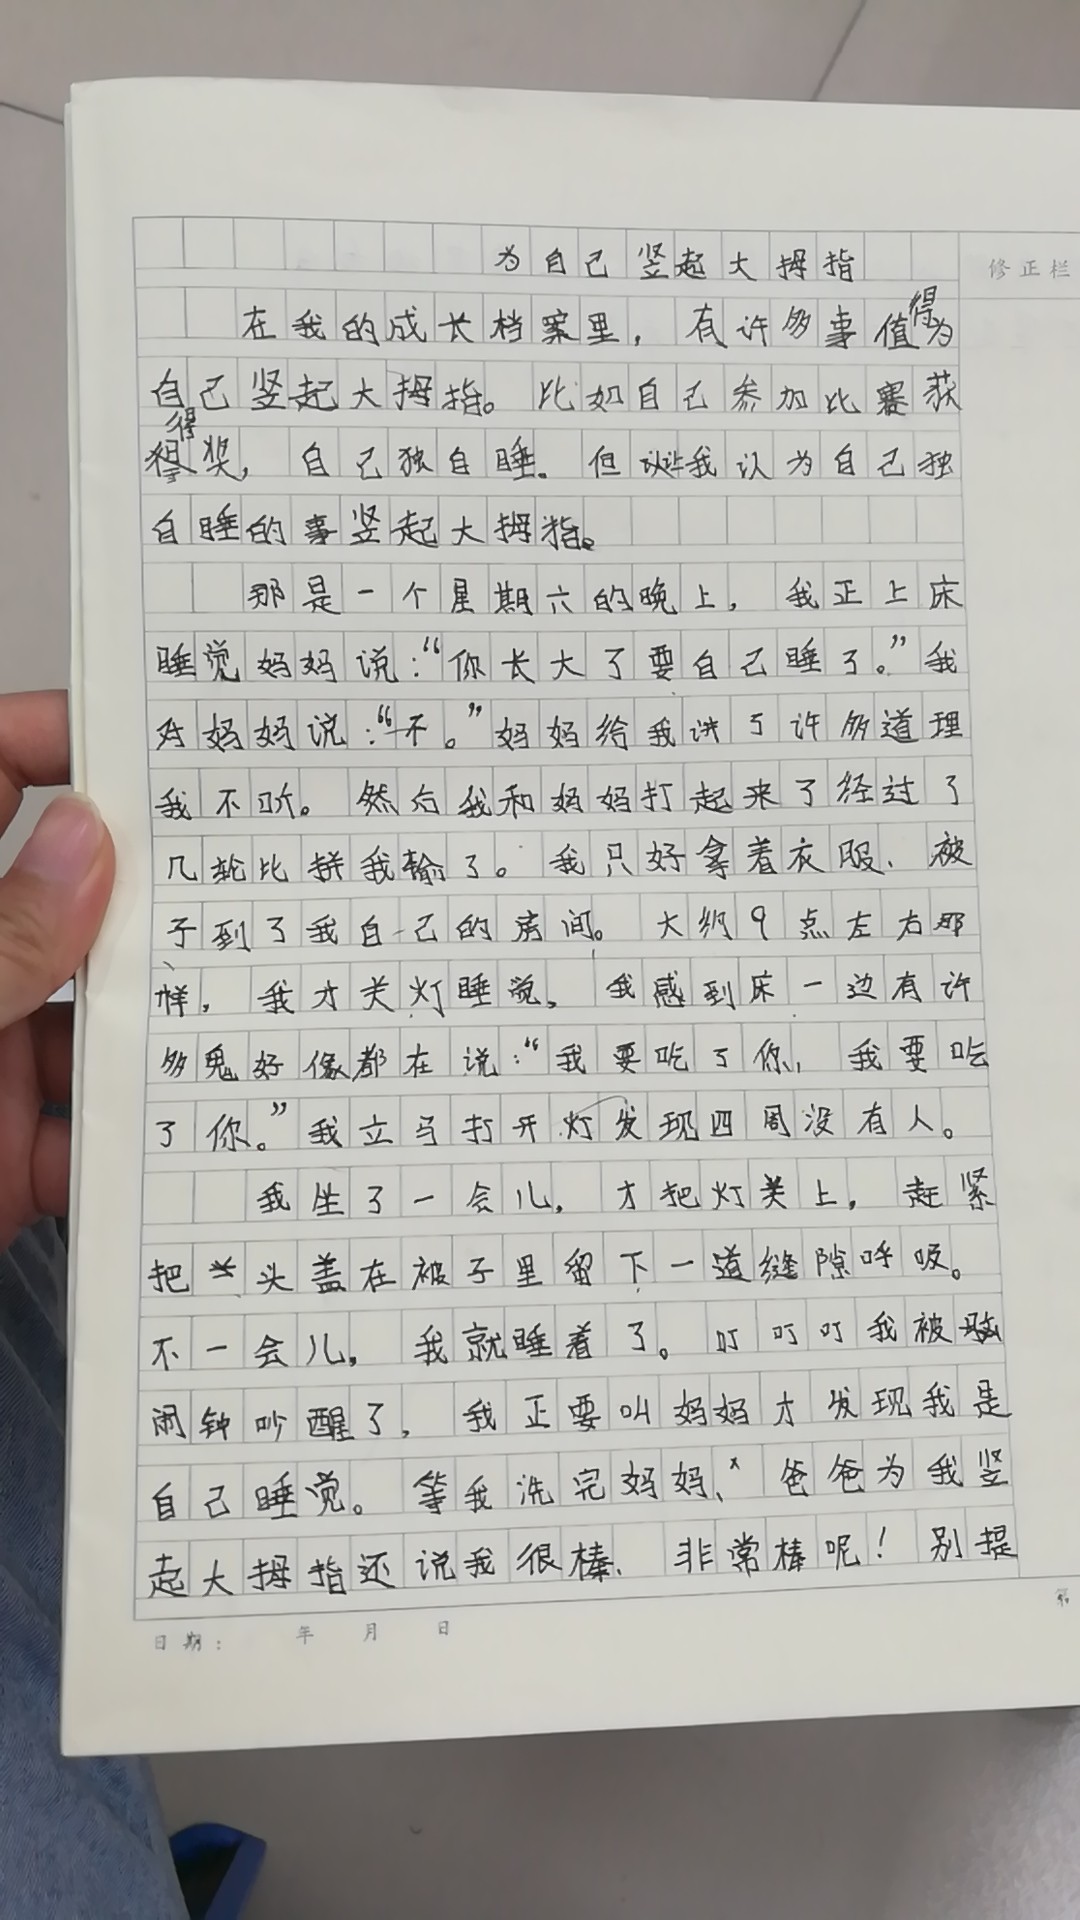 为自己竖起大拇指
修正栏
在我的成长档案里，有许多事值得为
自己竖起大拇指。比如自己参加比赛获
得奖，自己独自睡。但我认为自己独
自睡的事竖起大拇指。
那是一个星期六的晚上，我正上床
睡觉妈妈说：“你长大了要自己睡了。”我
对妈妈说：“不。”妈妈给我讲了许多道理
我不听。然后我和妈妈打起来了经过了
几轮比拼我输了。我只好拿着衣服、被
子到了我自己的房间。大约9点左右那
样，我才关灯睡觉，我感到床一边有许
多鬼好像都在说：“我要吃了你，我要吃
了你。”我立马打开灯发现四周没有人。
我坐了一会儿，才把灯关上，赶紧
把头盖在被子里留下一道缝隙呼吸。
不一会儿，我就睡着了。叮叮叮我被
闹钟吵醒了，我正要叫妈妈才发现我是
自己睡觉。等我洗完妈妈、爸爸为我竖
起大拇指还说我很棒、非常棒呢！别提
日期： 年 月 日
第